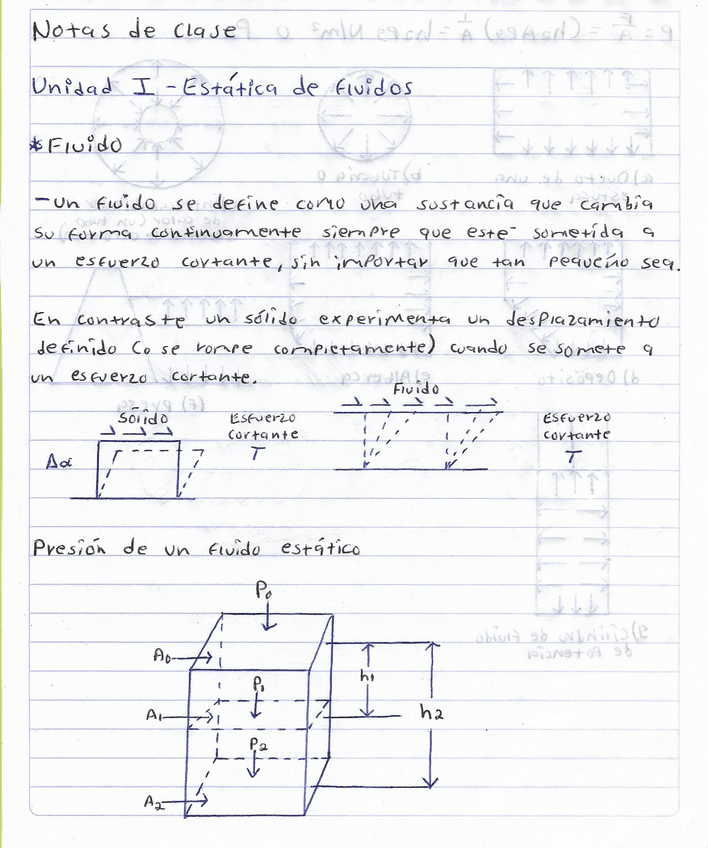 Notas de clase
Unidad I - Estática de fluidos
*Fluido
- un fluido se define como una sustancia que cambia
su forma continuamente siempre que esté sometida a
un esfuerzo cortante, sin importar que tan pequeño sea.
En contraste un sólido experimenta un desplazamiento
definido (o se rompe completamente) cuando se somete a
un esfuerzo cortante.
Sólido
Esfuerzo
cortante
T
Δα
Fluido
Esfuerzo
cortante
T
Presión de un fluido estático
P0
A0
P1
h1
A1
h2
P2
A2